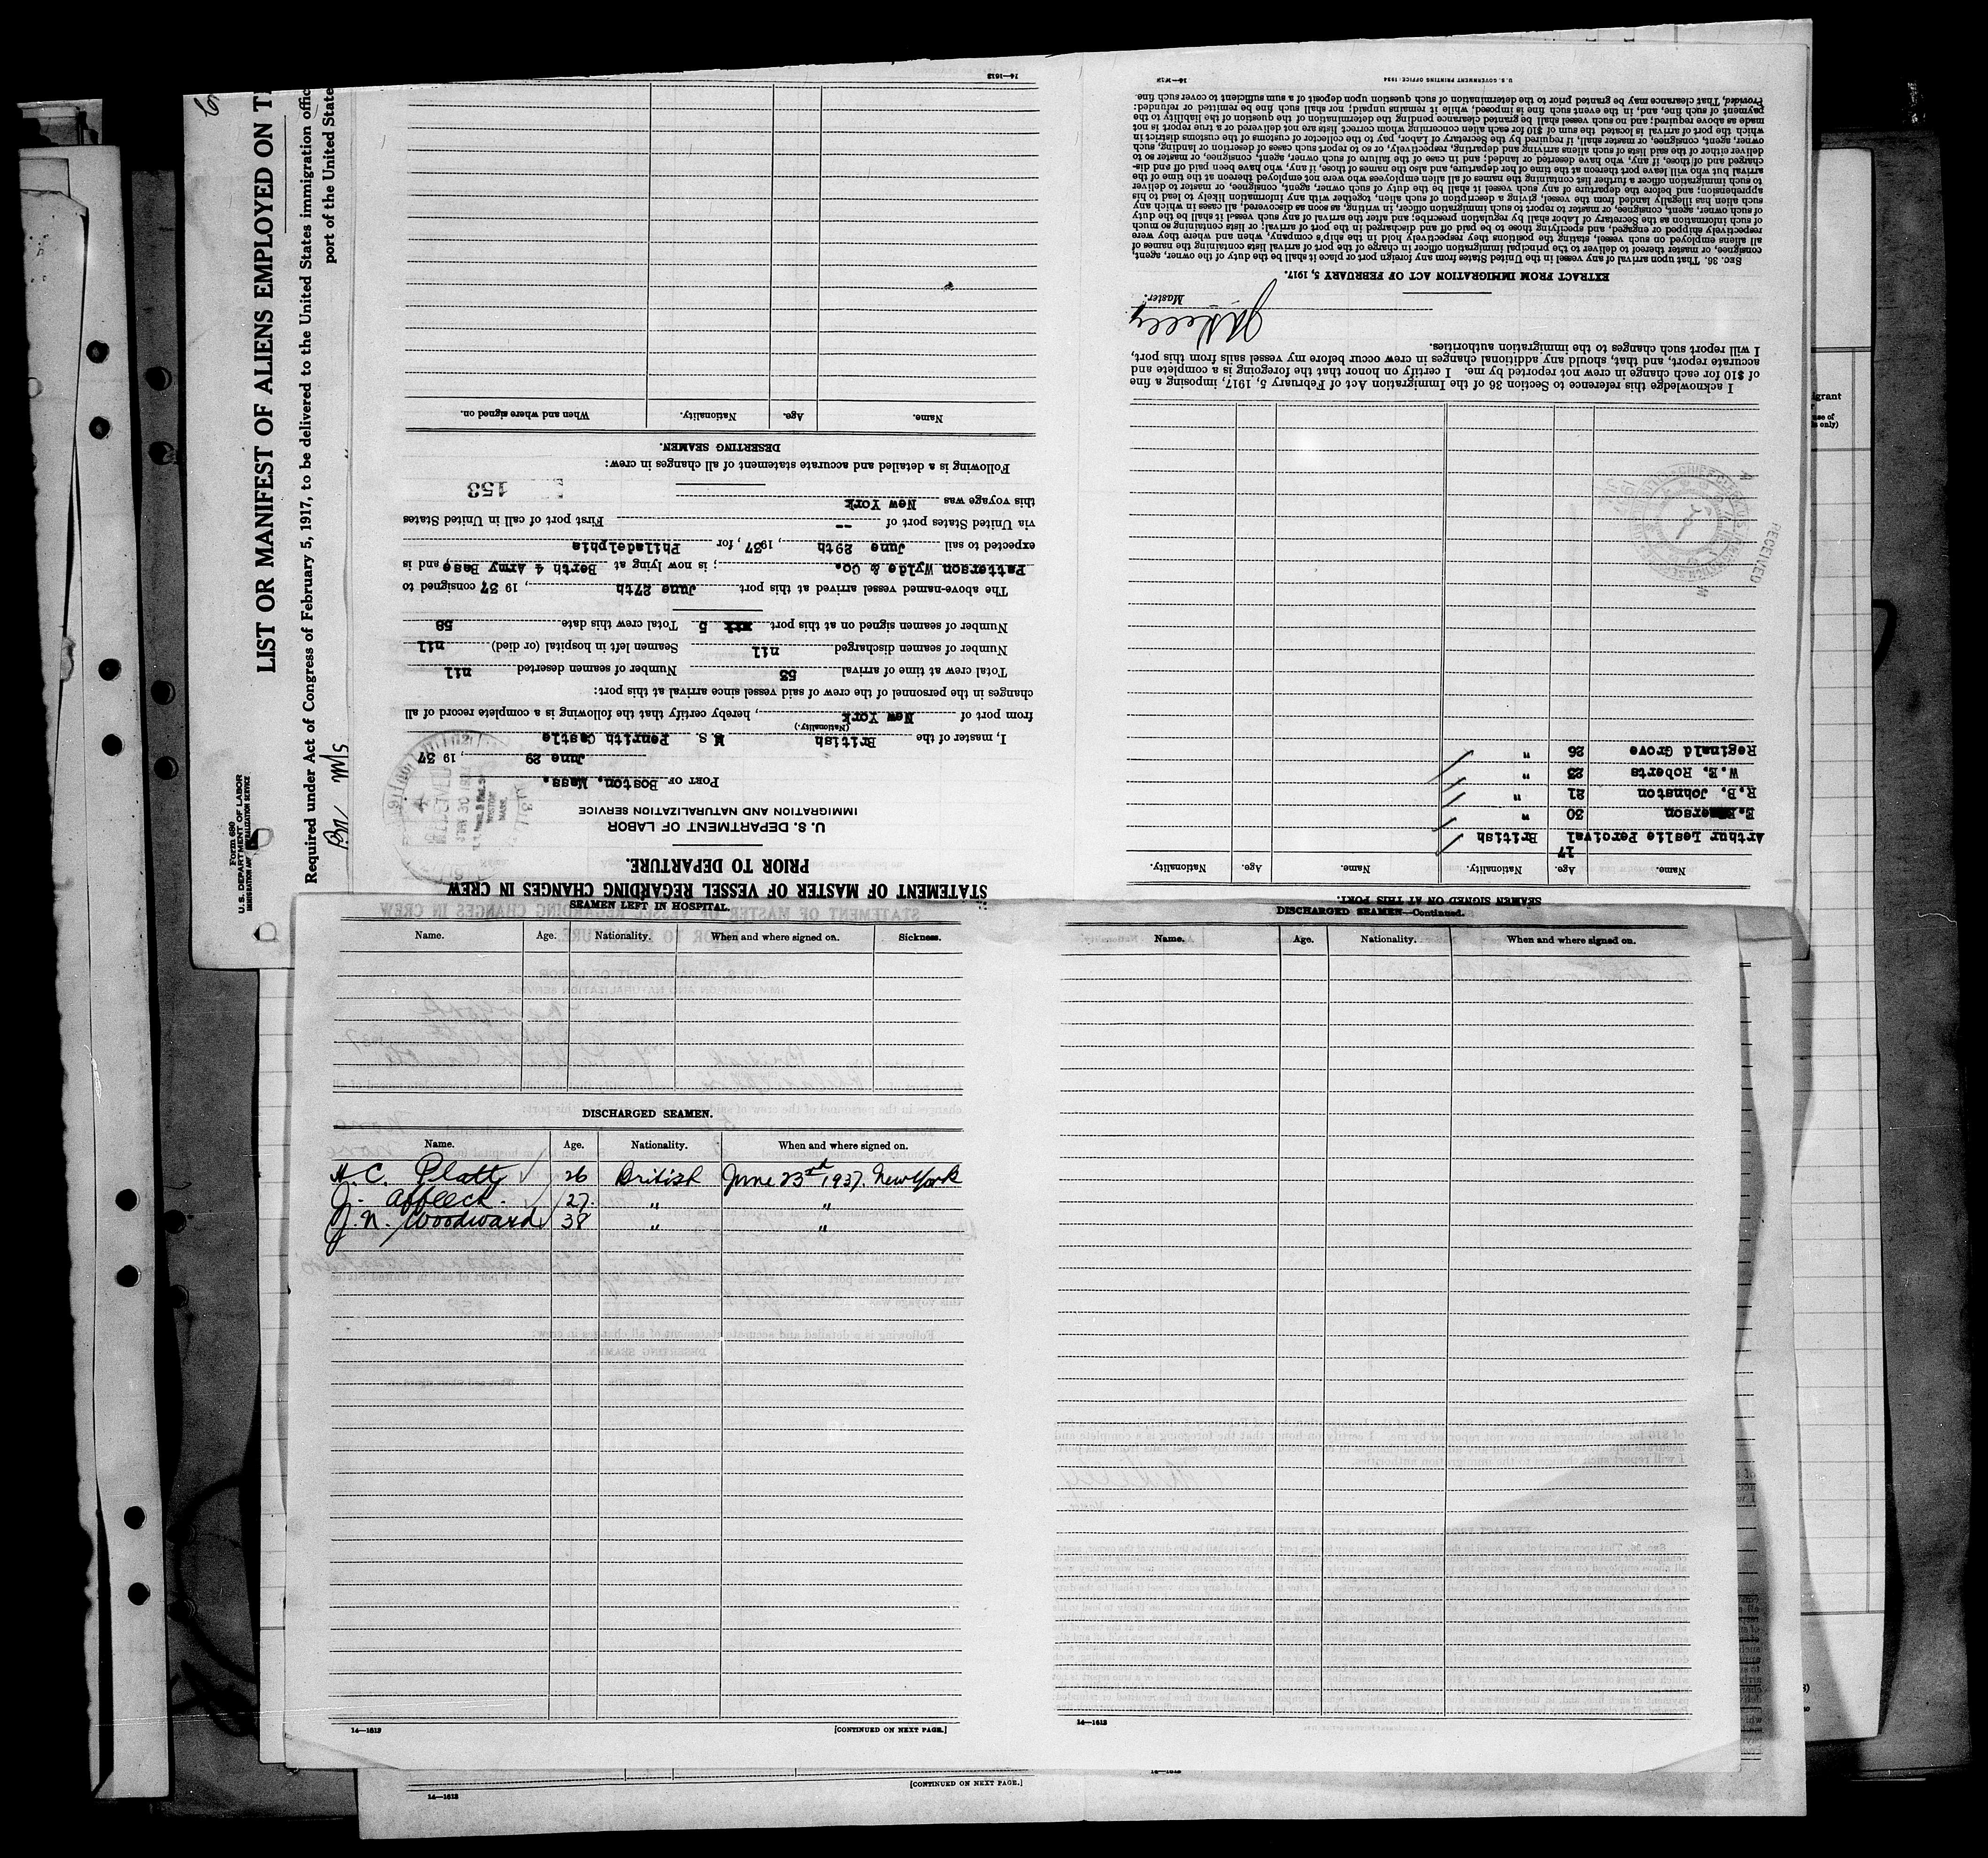 LIST OR MANIFEST OF ALIENS EMPLOYED ON
Required under Act of Congress of February 5, 1917, to be delivered to the United States immigration
port of the United
Form 680
U. S. DEPARTMENT OF LABOR
IMMIGRATION AND NATURALIZATION SERVICE
STATEMENT OF MASTER OF VESSEL REGARDING CHANGES IN CREW
PRIOR TO DEPARTURE.
U. S. DEPARTMENT OF LABOR
IMMIGRATION AND NATURALIZATION SERVICE
PORT OF Boston, Mass.
June 29, 1937
I, master of the British M.S. Penrith Castle
(Nationality.)
from port of New York, hereby certify that the following is a complete record of all
changes in the personnel of the crew of said vessel since arrival at this port:
Total crew at time of arrival 53 Number of seamen deserted nil
Number of seamen discharged nil Seamen left in hospital (or died) nil
Number of seamen signed on at this port 5 Total crew this date 58
The above-named vessel arrived at this port June 27th, 1937 consigned to
Patterson Wylde & Co.; is now lying at Berth 4 Army Base, and is
expected to sail June 29th, 1937, for Philadelphia
via United States port of -- First port of call in United States
this voyage was New York
153
Following is a detailed and accurate statement of all changes in crew:
DESERTING SEAMEN.
Name. Age. Nationality. When and where signed on.
14—1613
SEAMEN SIGNED ON AT THIS PORT.
Name. Age. Nationality. Name. Age. Nationality.
Arthur Leslie Percival 17 British
30 "
R.B. Johnston 21 "
W.E. Roberts 23 "
Reginald Grove 26 "
RECEIVED
I acknowledge this reference to Section 36 of the Immigration Act of February 5, 1917, imposing a fine
of $10 for each change in crew not reported by me. I certify on honor that the foregoing is a complete and
accurate report, and that, should any additional changes in crew occur before my vessel sails from this port,
I will report such changes to the immigration authorities.
Master.
EXTRACT FROM IMMIGRATION ACT OF FEBRUARY 5, 1917.
SEC. 36. That upon arrival of any vessel in the United States from any foreign port or place it shall be the duty of the owner, agent,
consignee, or master thereof to deliver to the principal immigration officer in charge of the port of arrival lists containing the names of
all aliens employed on such vessel, stating the positions they respectively hold in the ship's company, when and where they were
respectively shipped or engaged, and specifying those to be paid off and discharged in the port of arrival; or lists containing so much
of such information as the Secretary of Labor shall by regulation prescribe; and after the arrival of any such vessel it shall be the duty
of such owner, agent, consignee, or master to report to such immigration officer, in writing, as soon as discovered, all cases in which any
such alien has illegally landed from the vessel, giving a description of such alien, together with any information likely to lead to his
apprehension; and before the departure of any such vessel it shall be the duty of such owner, agent, consignee, or master to deliver
to such immigration officer a further list containing the names of all alien employees who were not employed thereon at the time of the
arrival but who will leave port thereon at the time of her departure, and also the names of those, if any, who have been paid off and dis-
charged and of those, if any, who have deserted or landed; and in case of the failure of such owner, agent, consignee, or master so to
deliver either of the said lists of such aliens arriving and departing, respectively, or so to report such cases of desertion or landing, such
owner, agent, consignee, or master shall, if required by the Secretary of Labor, pay to the collector of customs of the customs district in
which the port of arrival is located the sum of $10 for each alien concerning whom correct lists are not delivered or a true report is not
made as above required; and no such vessel shall be granted clearance pending the determination of the question of the liability to the
payment of such fine, and, in the event such fine is imposed, while it remains unpaid; nor shall such fine be remitted or refunded:
Provided, That clearance may be granted prior to the determination of such question upon deposit of a sum sufficient to cover such fine.
14—1613 U. S. GOVERNMENT PRINTING OFFICE: 1934
SEAMEN LEFT IN HOSPITAL.
Name. Age. Nationality. When and where signed on. Sickness.
DISCHARGED SEAMEN.
Name. Age. Nationality. When and where signed on.
H. C. Platt 26 British June 23rd 1937. New York
J. Affleck. 27. " "
J. N. Woodward 38 " "
14—1613 [CONTINUED ON NEXT PAGE.]
DISCHARGED SEAMEN—Continued.
Name. Age. Nationality. When and where signed on.
14—1613
[CONTINUED ON NEXT PAGE.]
14—1613
14—1613